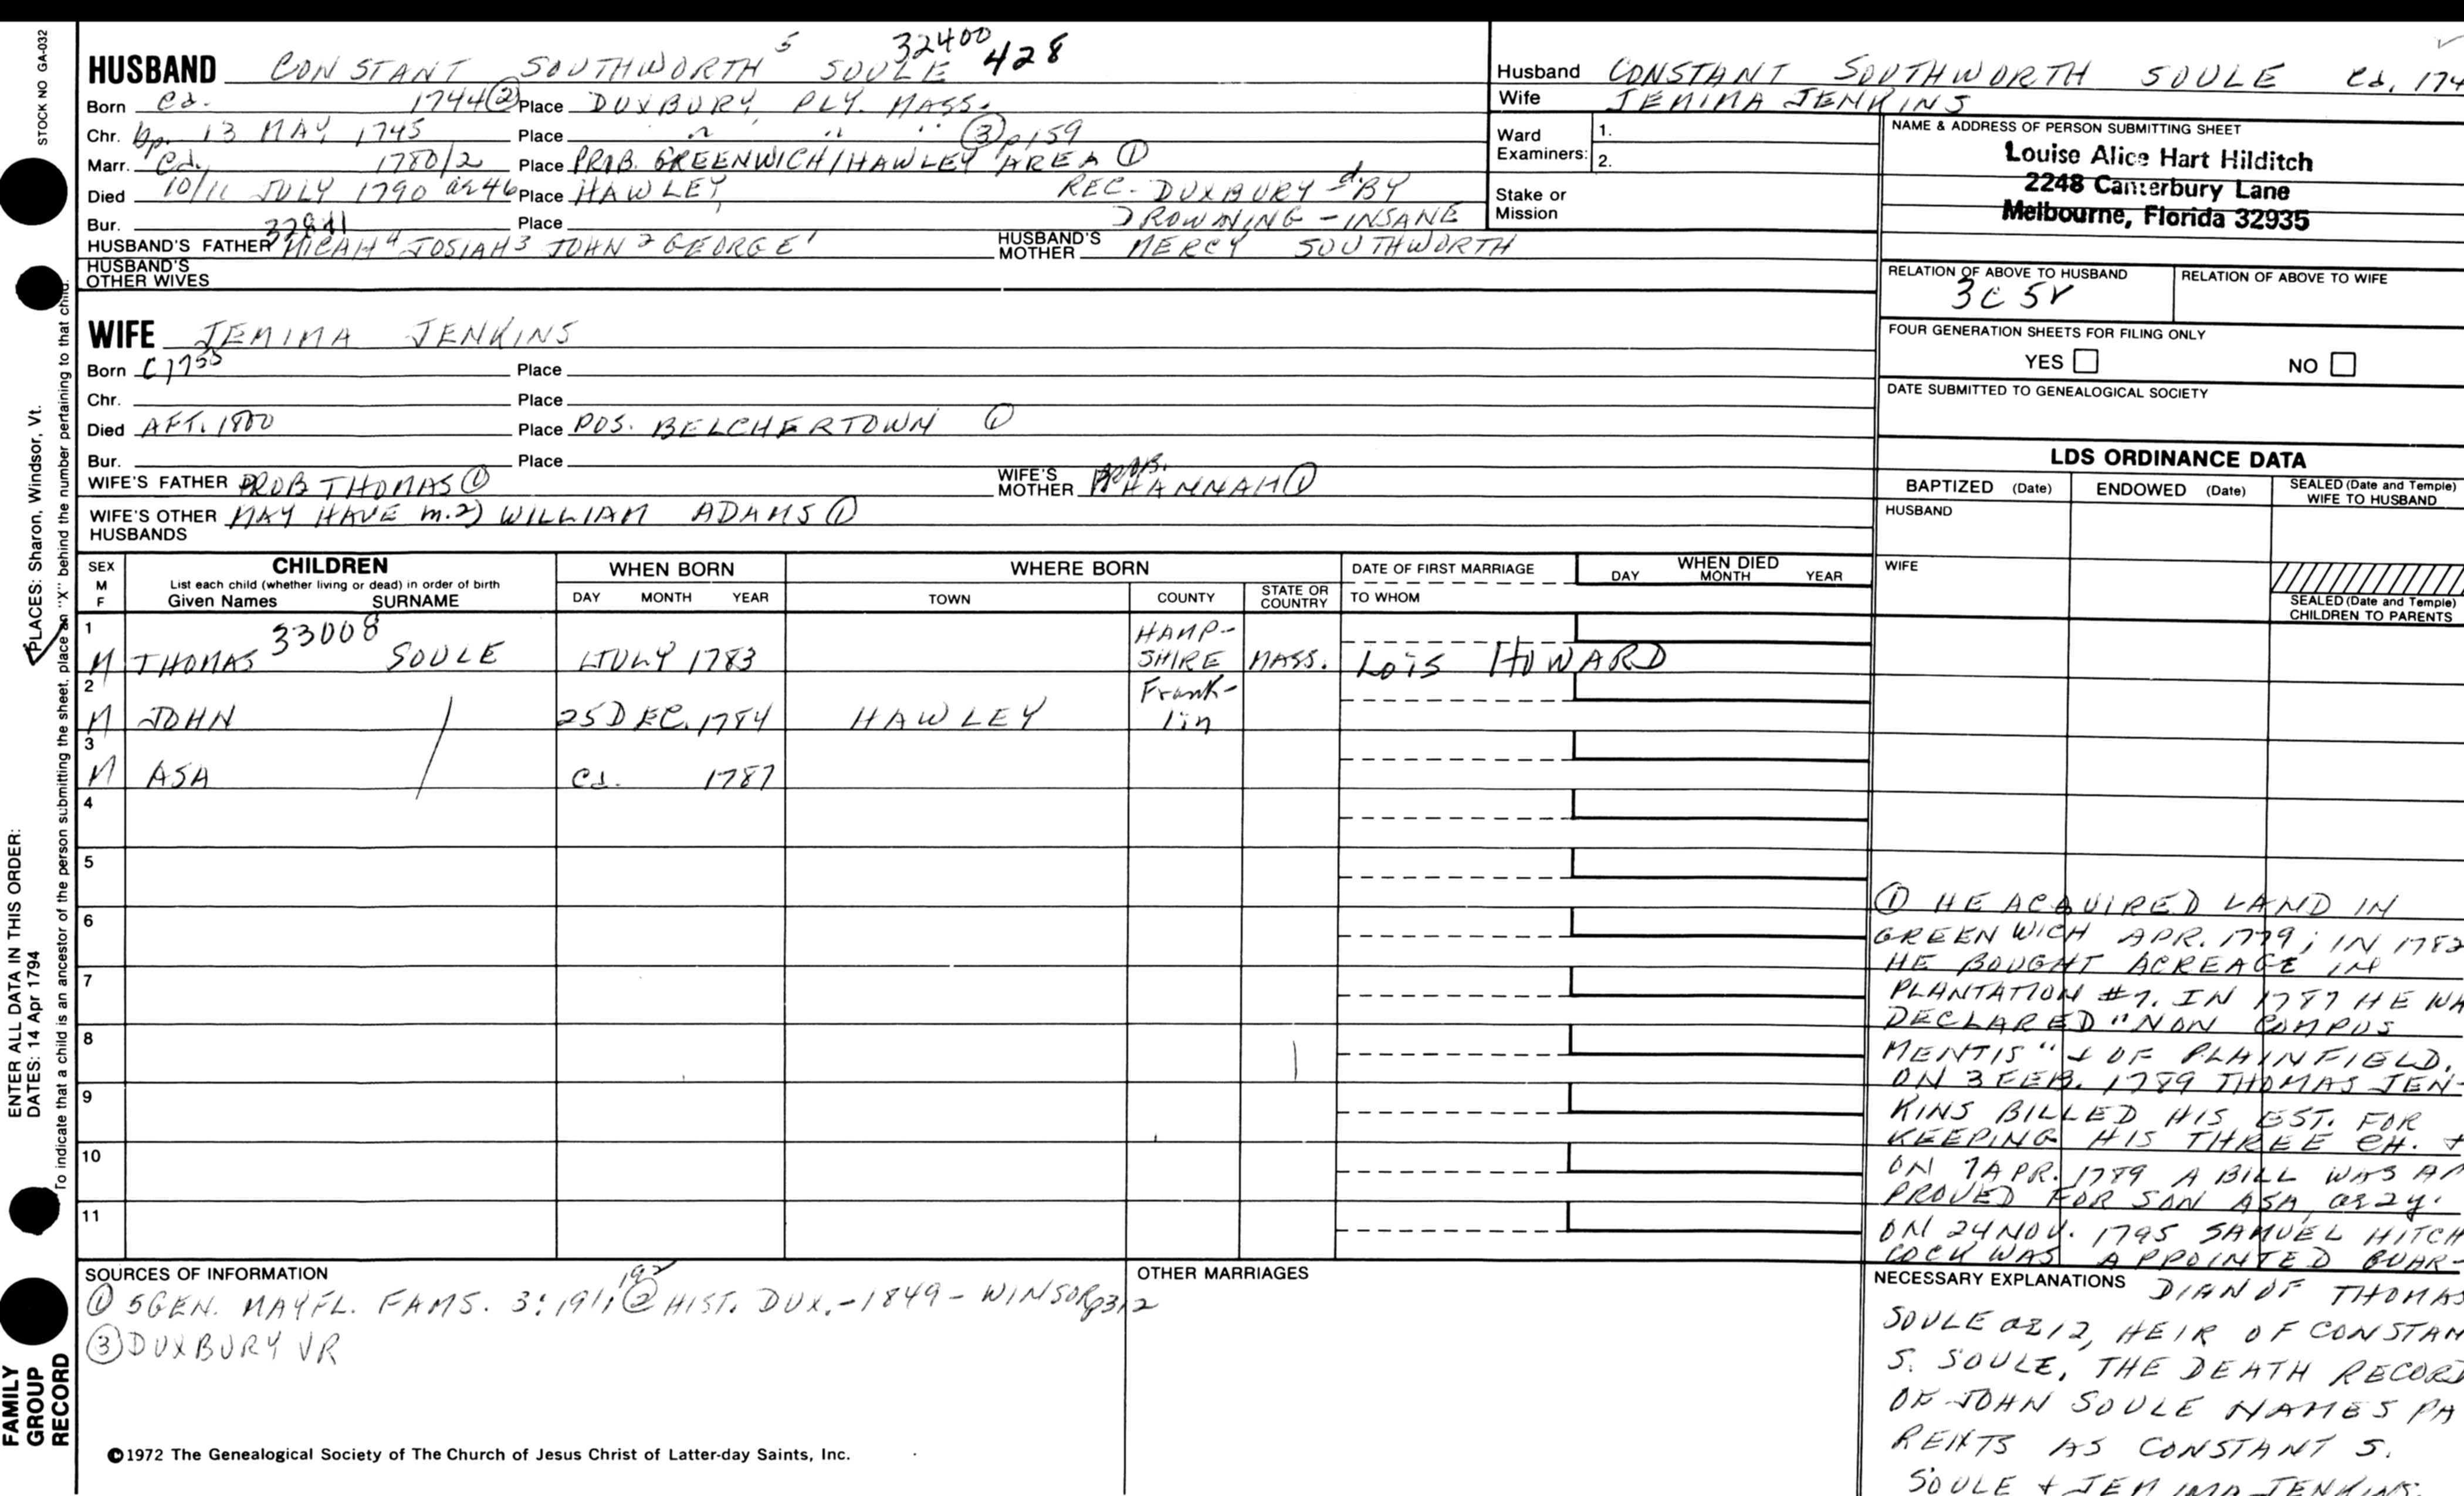 STOCK NO GA-032
PLACES: Sharon, Windsor, Vt.
ENTER ALL DATA IN THIS ORDER:
DATES: 14 Apr 1794
To indicate that a child is an ancestor of the person submitting the sheet, place an "X" behind the number pertaining to that child.
FAMILY
GROUP
RECORD
32400
HUSBAND CONSTANT SOUTHWORTH 5 SOULE 428
Born Ca. 1744 ② Place DUXBURY, PLY. MASS.
Chr. bp. 13 MAY 1745 Place " " " ③ p159
Marr. Ca. 1780/2 Place PROB. GREENWICH/HAWLEY AREA ①
Died 10/11 JULY 1790 ae 46 Place HAWLEY REC. DUXBURY d. BY
Bur. Place DROWNING - INSANE
HUSBAND'S FATHER MICAH 4 JOSIAH 3 JOHN 2 GEORGE 1 HUSBAND'S MOTHER MERCY SOUTHWORTH
HUSBAND'S OTHER WIVES
WIFE JEMIMA JENKINS
Born C 1755 Place
Chr. Place
Died AFT. 1800 Place POS. BELCHERTOWN ①
Bur. Place
WIFE'S FATHER PROB THOMAS ① WIFE'S MOTHER PROB. HANNAH ①
WIFE'S OTHER HUSBANDS MAY HAVE m. 2) WILLIAM ADAMS ①
Husband CONSTANT SOUTHWORTH SOULE Ca. 174
Wife JEMIMA JENKINS
Ward Examiners: 1.
2.
Stake or Mission
NAME & ADDRESS OF PERSON SUBMITTING SHEET
Louise Alice Hart Hilditch
2248 Canterbury Lane
Melbourne, Florida 32935
RELATION OF ABOVE TO HUSBAND RELATION OF ABOVE TO WIFE
3C 5r
FOUR GENERATION SHEETS FOR FILING ONLY
YES NO
DATE SUBMITTED TO GENEALOGICAL SOCIETY
LDS ORDINANCE DATA
BAPTIZED (Date) ENDOWED (Date) SEALED (Date and Temple) WIFE TO HUSBAND
HUSBAND
WIFE
SEALED (Date and Temple) CHILDREN TO PARENTS
SEX M F CHILDREN WHEN BORN WHERE BORN DATE OF FIRST MARRIAGE WHEN DIED
List each child (whether living or dead) in order of birth
Given Names SURNAME DAY MONTH YEAR TOWN COUNTY STATE OR COUNTRY TO WHOM DAY MONTH YEAR
1 33008 HAMP-
M THOMAS SOULE 1 JULY 1783 SHIRE MASS. LOIS HOWARD
2 Frank-
M JOHN 25 DEC. 1784 HAWLEY lin
3
M ASA Ca. 1787
4
5
6
7
8
9
10
11
① HE ACQUIRED LAND IN
GREENWICH APR. 1779; IN 1783
HE BOUGHT ACREAGE IN
PLANTATION #7. IN 1787 HE WA
DECLARED "NON COMPUS
MENTIS" & OF PLAINFIELD.
ON 3 FEB. 1789 THOMAS JEN-
KINS BILLED HIS EST. FOR
KEEPING HIS THREE CH. +
ON 7 APR. 1789 A BILL WAS AP
PROVED FOR SON ASA, ae 2y.
ON 24 NOV. 1795 SAMUEL HITCH
COCK WAS APPOINTED GUAR-
NECESSARY EXPLANATIONS DIAN OF THOMAS
SOULE ae 12, HEIR OF CONSTAN
S. SOULE, THE DEATH RECORD
OF JOHN SOULE NAMES PA
RENTS AS CONSTANT S.
SOULE + JEMIMA JENKINS.
SOURCES OF INFORMATION
① 5 GEN. MAYFL. FAMS. 3:191, 192 ② HIST. DUX.-1849-WINSOR p312
③ DUXBURY VR
OTHER MARRIAGES
©1972 The Genealogical Society of The Church of Jesus Christ of Latter-day Saints, Inc.